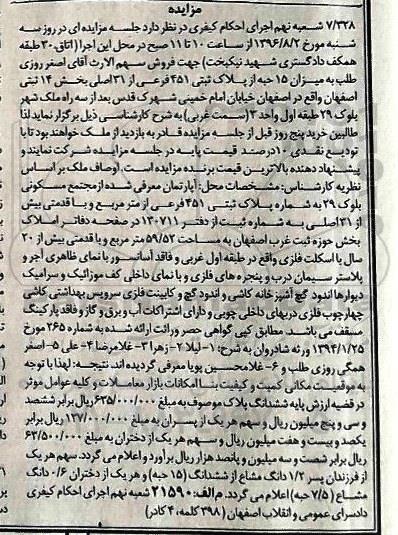 مزایده
۷/۳۲۸ شعبه نهم اجرای احکام کیفری در نظر دارد جلسه مزایده ای در روز سه
شنبه مورخ ۱۳۹۶/۸/۲ از ساعت ۱۰ تا ۱۱ صبح در محل این اجرا (اتاق ۳۰ طبقه
همکف دادگستری شهید نیکبخت) جهت فروش سهم الارث آقای اصغر روزی
طلب به میزان ۱۵ حبه از پلاک ثبتی ۴۵۱ فرعی از ۳۱ اصلی بخش ۱۴ ثبتی
اصفهان واقع در اصفهان خیابان امام خمینی شهرک قدس بعد از سه راه ملک شهر
بلوک ۲۹ طبقه اول واحد ۳ (سمت غربی) به شرح کارشناسی ذیل برگزار نماید لذا
طالبین خرید پنج روز قبل از جلسه مزایده قادر به بازدید از ملک خواهند بود تا با
تودیع نقدی ۱۰ درصد قیمت پایه در جلسه مزایده شرکت نمایند و
پیشنهاد دهنده بالاترین قیمت برنده مزایده است. اوصاف ملک بر اساس
نظریه کارشناس: مشخصات محل: آپارتمان معرفی شده از مجتمع مسکونی
بلوک ۲۹ به شماره پلاک ثبتی ۴۵۱ فرعی از متر مربع و با قدمتی بیش
از ۳۱ اصلی به شماره ثبت از دفتر ۱۳۰۷۱۱ در صفحه دفاتر املاک
بخش حوزه ثبت غرب اصفهان به مساحت ۵۹/۵۲ متر مربع و با قدمتی بیش از ۲۰
سال با اسکلت فلزی واقع در طبقه اول غربی و فاقد آسانسور با نمای ظاهری آجر و
پلاستر سیمان درب و پنجره های فلزی و با نمای داخلی کف موزائیک و سرامیک
دیوارها اندود گچ آشپزخانه کاشی و اندود گچ و کابینت فلزی سرویس بهداشتی کاشی
چهارچوب فلزی دربهای داخلی چوبی و دارای اشتراکات آب و برق و گاز و فاقد پارکینگ
مسقف می باشد. مطابق کپی گواهی حصر وراثت ارائه شده به شماره ۲۶۵ مورخ
۱۳۹۴/۱/۲۵ ورثه شادروان به شرح: ۱- لیلا ۲- زهرا ۳- غلامرضا ۴- علی ۵- اصغر
همگی روزی طلب و ۶- غلامحسین پویا معرفی گردیده اند. نتیجه: لهذا با توجه
به موقعیت مکانی کمیت و کیفیت بنا امکانات بازار معاملات و کلیه عوامل موثر
در قضیه ارزش پایه ششدانگ پلاک موصوف به مبلغ ۶۳۵/۰۰۰/۰۰۰ ریال برابر ششصد
و سی و پنج میلیون ریال و سهم هر یک از پسران به مبلغ ۱۲۷/۰۰۰/۰۰۰ ریال برابر
یکصد و بیست و هفت میلیون ریال و سهم هر یک از دختران به مبلغ ۶۳/۵۰۰/۰۰۰
ریال برابر شصت و سه میلیون و پانصد هزار ریال برآورد و اعلام می گردد. سهم هر یک
از فرزندان پسر ۱/۲ دانگ مشاع از ششدانگ (۱۵ حبه) و هر یک از دختران ۰/۶ دانگ
مشاع (۷/۵ حبه) اعلام می گردد. م الف: ۲۱۵۹۰ شعبه نهم اجرای احکام کیفری
دادسرای عمومی و انقلاب اصفهان (۳۹۸ کلمه، ۴ کادر)